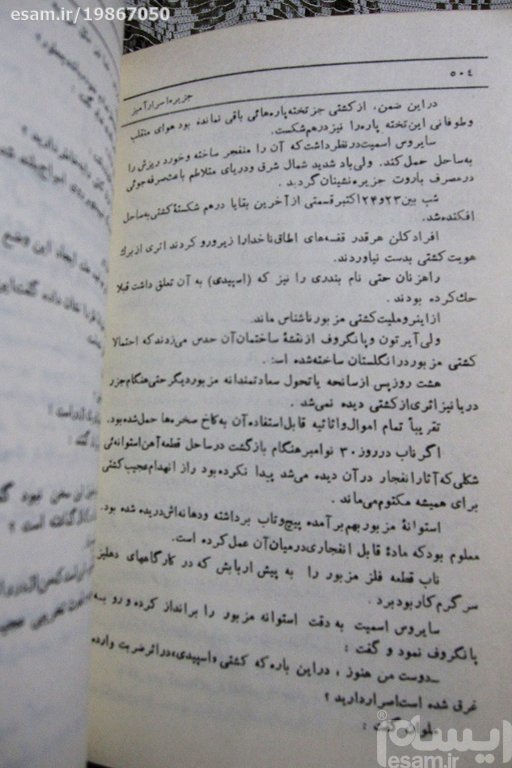 esam.ir/19867050
۵۰۴
جزیره اسرارآمیز
دراین ضمن، ازکشتی جز تخته پاره‌هائی باقی نمانده بود هوای منقلب
وطوفانی این تخته پاره‌را نیز درهم شکست.
سایروس اسمیت درنظرداشت که آن را منفجر ساخته وخورد ریزش را
به‌ساحل حمل کند. ولی‌باد شدید شمال شرق ودریای متلاطم باعث صرفه‌جوئی
درمصرف باروت جزیره‌نشینان گردید.
شب بین ۲۳و۲۴ اکتبر قسمتی از آخرین بقایا درهم شکستهٔ کشتی به‌ساحل
افکنده‌شد.
افراد کلن هرقدر قفسه‌های اطاق ناخدارا زیرورو کردند اثری از برگ
هویت کشتی بدست نیاوردند.
راهزنان حتی نام بندری را نیز که (اسپیدی) به آن تعلق داشت قبلا
حك کرده بودند.
ازاینرو ملیت کشتی مزبور ناشناس ماند.
ولی آیرتون و پانگروف از نقشهٔ ساختمان آن حدس می‌زدند که احتمالا
کشتی مزبور در انگلستان ساخته شده است.
هشت روز پس از سانحه یا تحول سعادتمندانه مزبور دیگر حتی هنگام جزر
دریا نیز اثری از کشتی دیده نمی‌شد.
تقریباً تمام اموال و اثاثیه قابل استفاده آن به کاخ سخره‌ها حمل شده بود.
اگر ناب درروز ۳۰ نوامبر هنگام بازگشت در ساحل قطعه آهن استوانه‌ئی
شکلی که آثار انفجار در آن دیده می‌شد پیدا نکرده بود راز انهدام عجیب کشتی
برای همیشه مکتوم می‌ماند.
استوانهٔ مزبور بهم برآمده پیچ وتاب برداشته ودهانه‌اش دریده شده بود.
معلوم بود که مادهٔ قابل انفجاری درمیان آن عمل کرده است.
ناب قطعه فلز مزبور را به پیش اربابش که در کارگاههای دهلیز
سرگرم کار بود برد.
سایروس اسمیت به دقت استوانه مزبور را برانداز کرده و رو به
پانگروف نمود و گفت:
ـدوست من هنوز، دراین باره که کشتی «اسپیدی» دراثر ضربت وارده
غرق شده است اصرار دارید؟
ملوان گفت:
ایسام
esam.ir